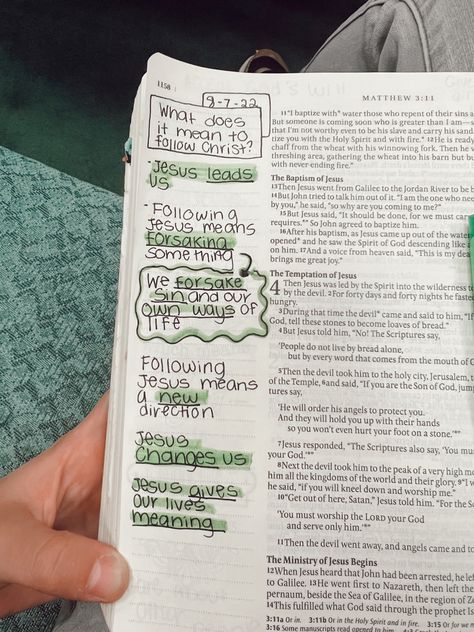 1158
MATTHEW 3:11
8-7-22
What does
it mean to
follow Christ?
Jesus leads
us
·Following
Jesus means
forsaking
something
We forsake
sin and our
own ways of
life
Following
Jesus means
a new
direction
Jesus
changes us
Jesus gives
our lives
meaning
11“I baptize with* water those who repent of their sins a
But someone is coming soon who is greater than I am—s
that I’m not worthy even to be his slave and carry his sand
you with the Holy Spirit and with fire.* 12He is ready
chaff from the wheat with his winnowing fork. Then he v
threshing area, gathering the wheat into his barn but b
with never-ending fire.”
The Baptism of Jesus
13Then Jesus went from Galilee to the Jordan River to be
14But John tried to talk him out of it. “I am the one who nee
by you,” he said, “so why are you coming to me?”
15But Jesus said, “It should be done, for we must carr
requires.*” So John agreed to baptize him.
16After his baptism, as Jesus came up out of the water
opened* and he saw the Spirit of God descending like a
on him. 17And a voice from heaven said, “This is my dea
brings me great joy.”
The Temptation of Jesus
4 Then Jesus was led by the Spirit into the wilderness
by the devil. 2For forty days and forty nights he faste
hungry.
3During that time the devil* came and said to him, “If
God, tell these stones to become loaves of bread.”
4But Jesus told him, “No! The Scriptures say,
‘People do not live by bread alone,
but by every word that comes from the mouth of G
5Then the devil took him to the holy city, Jerusalem, t
of the Temple, 6and said, “If you are the Son of God, jum
tures say,
‘He will order his angels to protect you.
And they will hold you up with their hands
so you won’t even hurt your foot on a stone.’*”
7Jesus responded, “The Scriptures also say, ‘You mu
your God.’*”
8Next the devil took him to the peak of a very high m
him all the kingdoms of the world and their glory. 9“I w
he said, “if you will kneel down and worship me.”
10“Get out of here, Satan,” Jesus told him. “For the Sc
‘You must worship the LORD your God
and serve only him.’*”
11Then the devil went away, and angels came and to
The Ministry of Jesus Begins
12When Jesus heard that John had been arrested, he lef
to Galilee. 13He went first to Nazareth, then left the
pernaum, beside the Sea of Galilee, in the region of Z
14This fulfilled what God said through the prophet Is
3:11a Or in. 3:11b Or in the Holy Spirit and in fire. 3:15 Or for we m
3:16 Some manuscripts read opened to him.